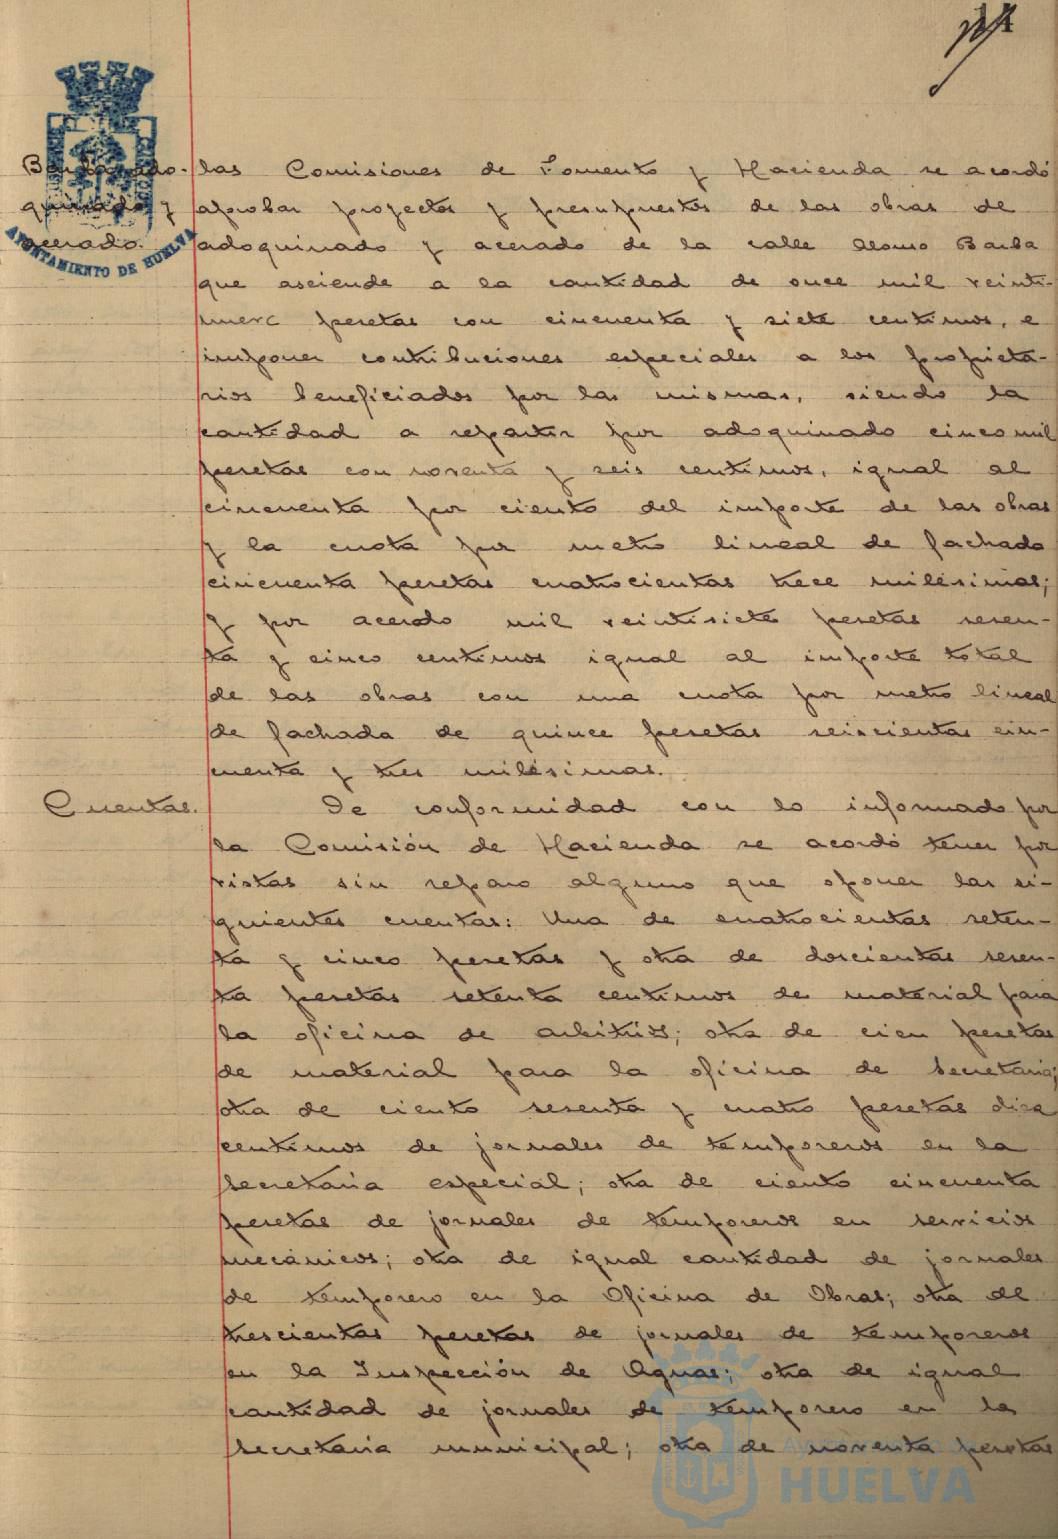 AYUNTAMIENTO DE HUELVA
quinado y
acerado.
las Comisiones de Fomento y Hacienda se acordó
aprobar proyectos y presupuestos de las obras de
adoquinado y acerado de la calle Alonso Barba
que asciende a la cantidad de once mil veinti-
nueve pesetas con cincuenta y siete centimos, e
imponer contribuciones especiales a los propieta-
rios beneficiados por las mismas, siendo la
cantidad a repartir por adoquinado cinco mil
pesetas con noventa y seis centimos, igual al
cincuenta por ciento del importe de las obras
y la cuota por metro lineal de fachada
cincuenta pesetas cuatrocientas trece milésimas;
y por acerado mil veintisiete pesetas sesen-
ta y cinco centimos igual al importe total
de las obras con una cuota por metro lineal
de fachada de quince pesetas seiscientas cin-
cuenta y tres milésimas.
Cuentas.
De conformidad con lo informado por
la Comisión de Hacienda se acordó tener por
vistas sin reparo alguno que oponer las si-
guientes cuentas: Una de cuatrocientas seten-
ta y cinco pesetas y otra de doscientas sesen-
ta pesetas setenta centimos de material para
la oficina de arbitrios; otra de cien pesetas
de material para la oficina de Secretaria;
otra de ciento sesenta y cuatro pesetas diez
centimos de jornales de temporeros en la
Secretaria especial; otra de ciento cincuenta
pesetas de jornales de temporeros en servicios
mecánicos; otra de igual cantidad de jornales
de temporero en la Oficina de Obras; otra de
trescientas pesetas de jornales de temporeros
en la Inspección de Aguas; otra de igual
cantidad de jornales de temporero en la
Secretaria municipal; otra de noventa pesetas
HUELVA